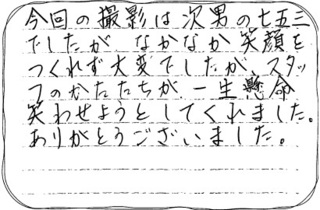 今回の撮影は次男の七五三
でしたが なかなか笑顔を
つくれず大変でしたが、スタッ
フのかたたちが、一生懸命
笑わせようとしてくれました。
ありがとうございました。